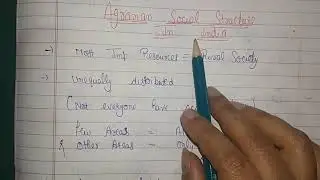 Agrarian Social Structure
in India
→ Most Imp Resources = Rural Society
→ Unequally distributed
(Not everyone have
Few Areas =
& Other Areas = Only